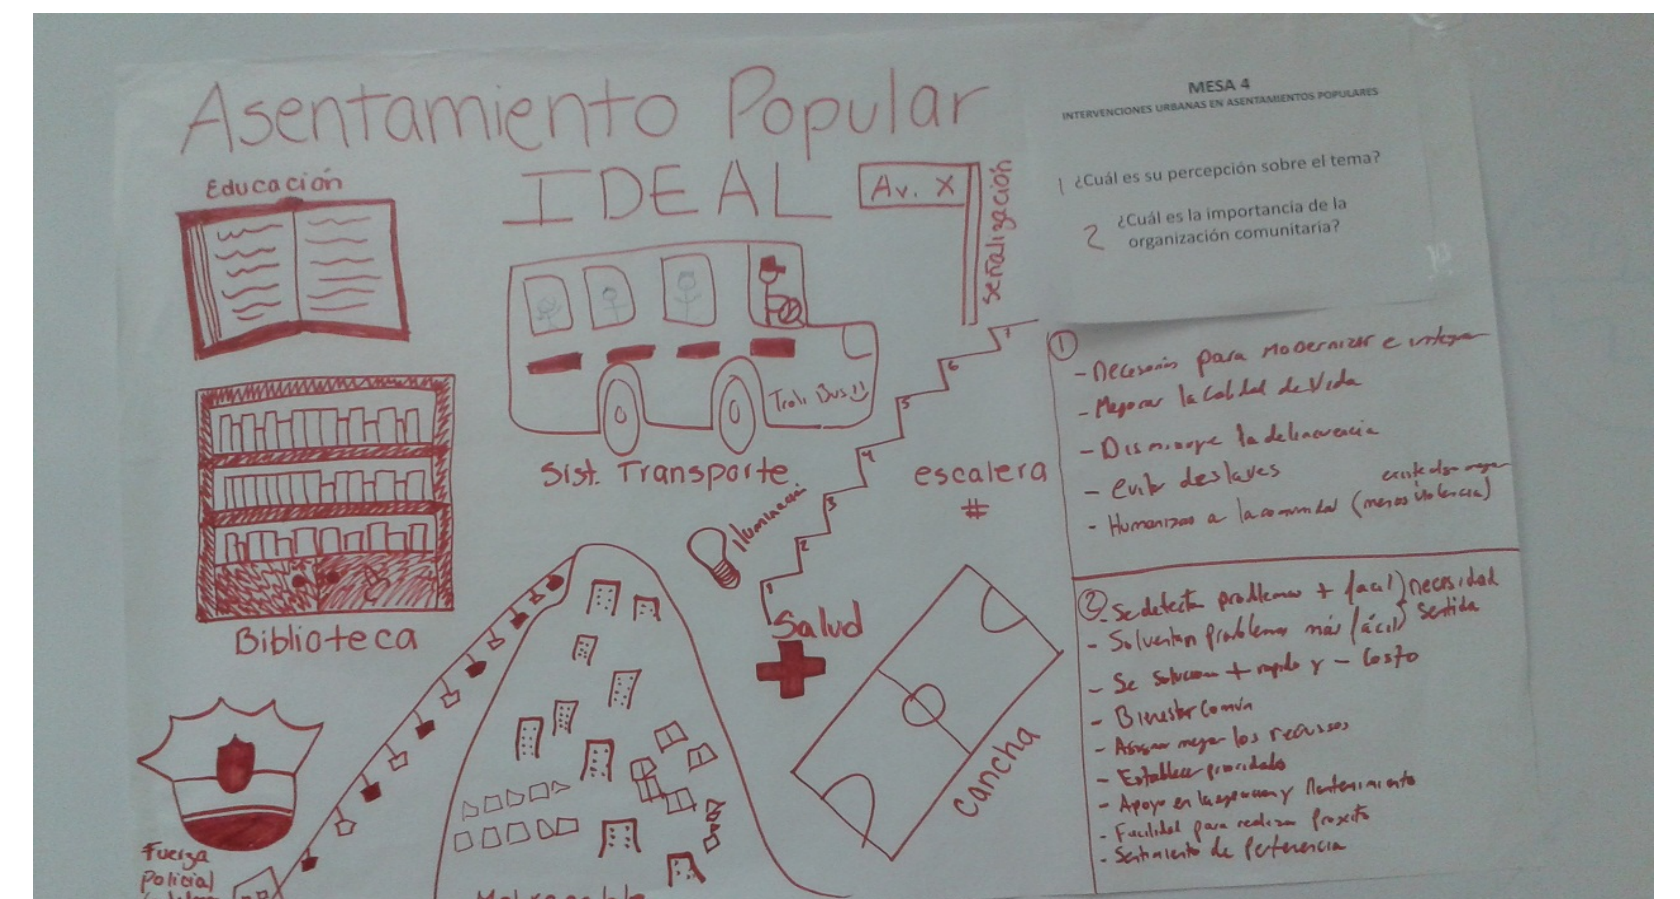 Asentamiento Popular
IDEAL
Educación
Biblioteca
Fuerza
Policial
Av. X
señalización
Troli Bus
Sist. Transporte
Iluminación
1
2
3
4
5
6
7
escalera
#
Salud
Cancha
MESA 4
INTERVENCIONES URBANAS EN ASENTAMIENTOS POPULARES
1 ¿Cuál es su percepción sobre el tema?
2 ¿Cuál es la importancia de la
organización comunitaria?
1
- Necesarias para modernizar e integrar
- Mejorar la Calidad de Vida
- Disminuye la delincuencia
- evitar deslaves
- Humanizas a la comunidad (menos violencia)
2
- Se detectan problemas + facil) necesidad
- Solventan problemas más fácil) sentida
- Se solucionan + rapido y - Costo
- Bienestar Común
- Asignar mejor los recursos
- Establecer prioridades
- Apoyo en la y Mantenimiento
- Facilidad para realizar Proyecto
- Sentimiento de Pertenencia